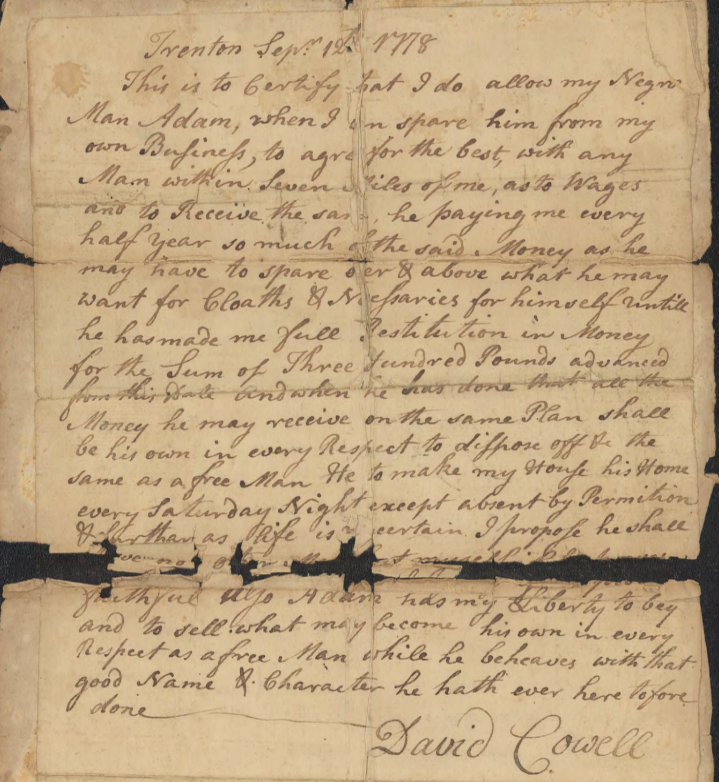 Trenton Sepr. 12th 1778
This is to Certify that I do allow my Negro
Man Adam, when I can spare him from my
own Business, to agree for the best, with any
Man within Seven Miles of me, as to Wages
and to Receive the same, he paying me every
half year so much of the said Money as he
may have to spare over & above what he may
want for Cloaths & Necessaries for himself untill
he has made me full Restitution in Money
for the Sum of Three Hundred Pounds advanced
from this Date and when he has done that all the
Money he may receive on the same Plan shall
be his own in every Respect to dispose off &c the
same as a free Man He to make my House his Home
every Saturday Night except absent by Permition
& furthar as life is uncertain I propose he shall
no other
faithful Also Adam has my Liberty to bey
and to sell what may become his own in every
Respect as a free Man while he beheaves with that
good Name & Character he hath ever here tofore
done
David Cowell